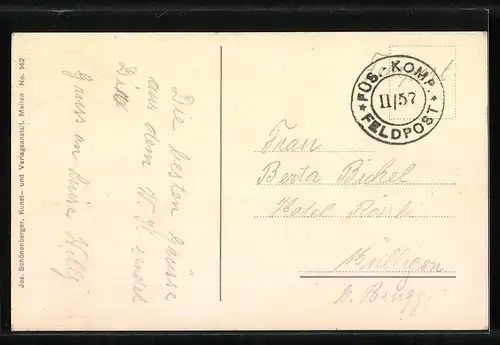 Die besten Grüsse
aus dem W. K. sendet
Gruss an Luise Willy
Jos. Schönenberger, Kunst- und Verlagsanstalt, Meilen No. 142
FÜS.-KOMP.
II/57
FELDPOST
Frau
Berta Bickel
Hotel Rössli
Mülligen
b. Brugg.